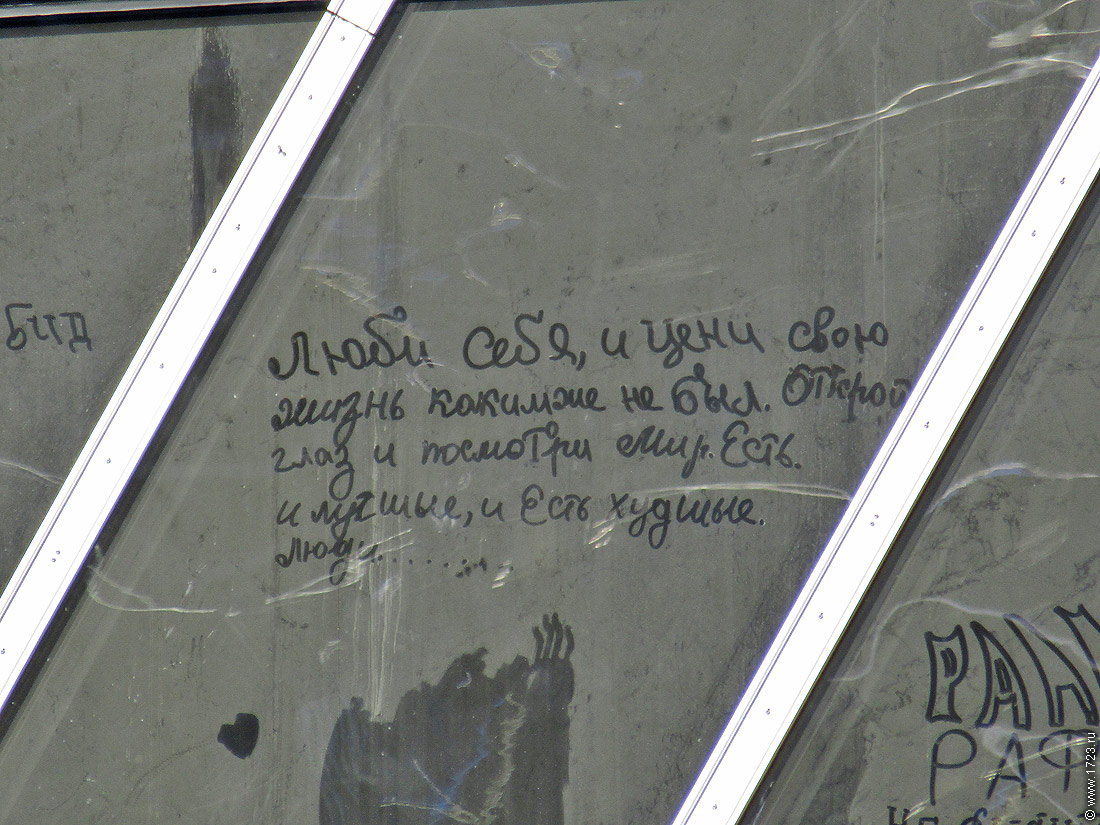 Бид
Люби себя, и цени свою
жизнь какимже не был. Открой
глаз и посмотри мир. Есть.
и лутшые, и Есть худшые.
люди..........
РАФ
© www.1723.ru